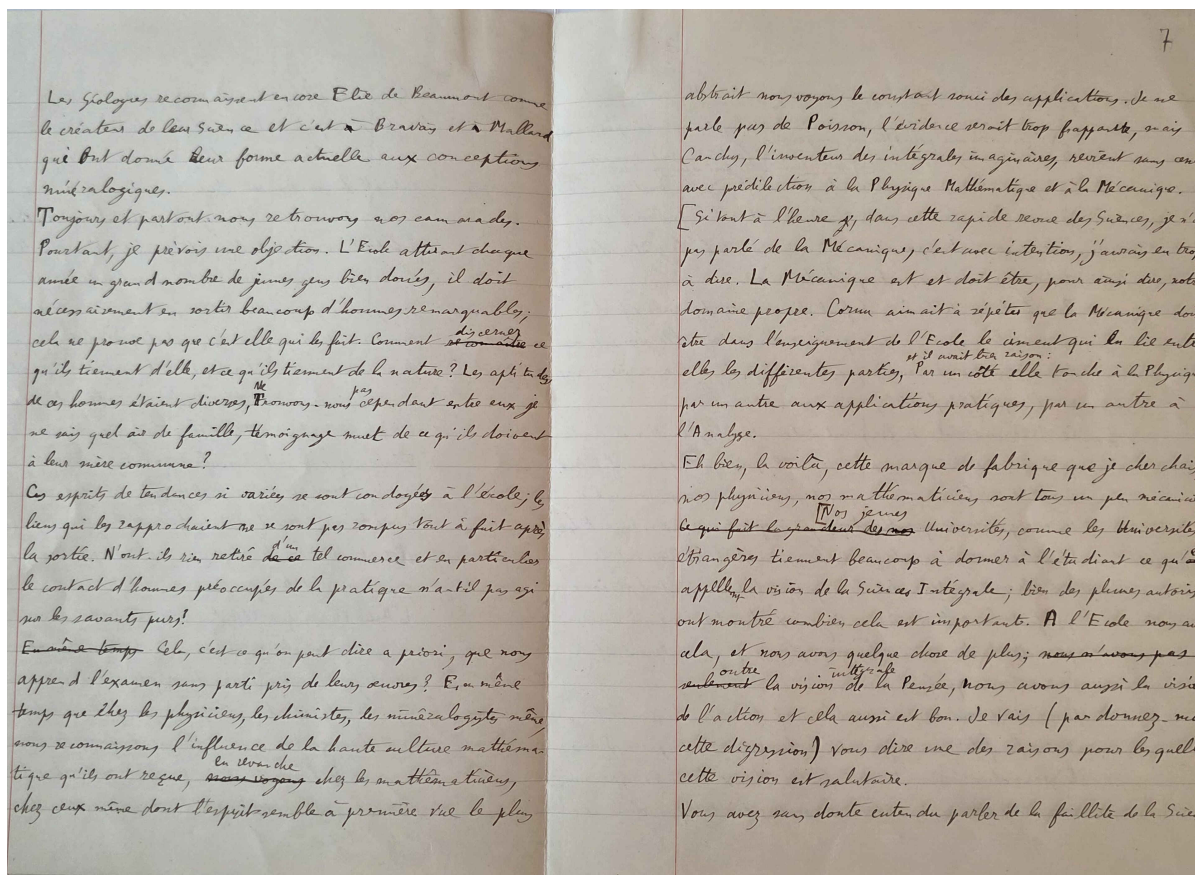 Les Géologues reconnaissent encore Elie de Beaumont comme
le créateur de leur Science et c'est à Bravais et à Mallard
qui ont donné leur forme actuelle aux conceptions
minéralogiques.
Toujours et partout nous retrouvons nos camarades.
Pourtant, je prévois une objection. L'Ecole attirant chaque
année un grand nombre de jeunes gens bien doués, il doit
nécessairement en sortir beaucoup d'hommes remarquables;
cela ne prouve pas que c'est elle qui les fait. Comment reconnaitre discerner ce
qu'ils tiennent d'elle, et ce qu'ils tiennent de la nature? Les aptitudes
de ces hommes étaient diverses, Ne Trouvons-nous pas cependant entre eux je
ne sais quel air de famille, témoignage muet de ce qu'ils doivent
à leur mère commune?
Ces esprits de tendances si variées se sont coudoyés à l'école; les
liens qui les rapprochaient ne se sont pas rompus tout à fait après
la sortie. N'ont-ils rien retiré de ce d'un tel commerce et en particulier
le contact d'hommes préoccupés de la pratique n'a-t-il pas agi
sur les savants purs!
En même temps Cela, c'est ce qu'on peut dire a priori, que nous
apprend l'examen sans parti pris de leurs œuvres? En même
temps que chez les physiciens, les chimistes, les minéralogistes même,
nous reconnaissons l'influence de la haute culture mathéma-
tique qu'ils ont reçue, nous voyons en revanche chez les mathématiciens,
chez ceux même dont l'esprit semble à première vue le plus
7
abstrait nous voyons le constant souci des applications. Je ne
parle pas de Poisson, l'évidence serait trop frappante, mais
Cauchy, l'inventeur des intégrales imaginaires, revient sans
avec prédilection à la Physique Mathématique et à la Mécanique.
[Si tout à l'heure, dans cette rapide revue des Sciences, je n'
pas parlé de la Mécanique, c'est avec intention, j'aurais eu
à dire. La Mécanique est et doit être, pour ainsi dire,
domaine propre. Cornu aimait à répéter que la Mécanique
être dans l'enseignement de l'Ecole le ciment qui lie
elles les différentes parties, et il avait bien raison: Par un côté elle touche à la
par un autre aux applications pratiques, par un autre à
l'Analyse.
Eh bien, la voilà, cette marque de fabrique que je cherchais
nos physiciens, nos mathématiciens sont tous un peu
Ce qui fait la grandeur des nos [Nos jeunes Universités, comme les Universités
étrangères tiennent beaucoup à donner à l'étudiant ce qu'
appellent la vision de la Science Intégrale; bien des plumes
ont montré combien cela est important. A l'Ecole nous
cela, et nous avons quelque chose de plus; nous n'avons pas
seulement outre la vision intégrale de la Pensée, nous avons aussi la
de l'action et cela aussi est bon. Je vais (pardonnez-
cette digression) vous dire une des raisons pour
cette vision est salutaire.
Vous avez sans doute entendu parler de la faillite de la